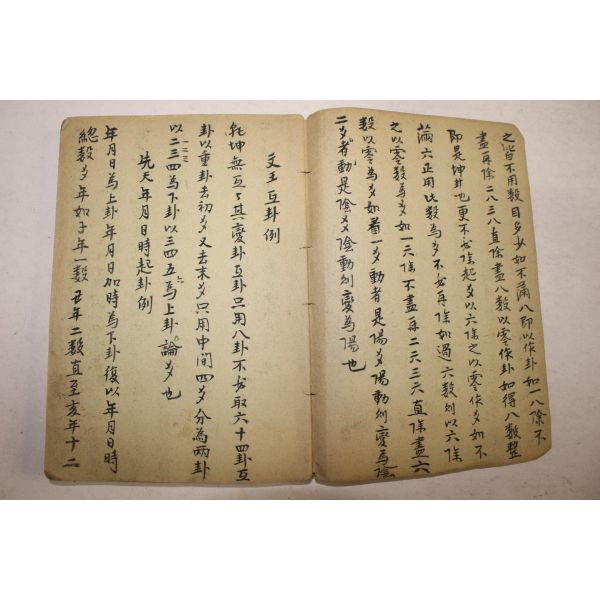 之皆不用数目多少如不滿八即以作卦如一八除不
盡再除二八三八直除盡八數以零作卦如得八數整
即是坤卦也更不必除起爻以六除之以零作爻如不
滿六正用此數為爻不必再除如過六數則以六除
之以零數為爻如一六除不盡再二六三六直除盡六
數以零為爻如看一爻動者是陽爻陽動則變為陰
二爻者動是陰爻陰動則變為陽也
文王互卦例
乾坤無互互其變卦互卦只用八卦不必取六十四卦互
卦以重卦去初爻又去末爻只用中間四爻分為兩卦
以二三四為下卦以三四五為上卦論爻也
先天年月日時起卦例
年月日為上卦年月日加時為下卦後以年月日時
總數爻年如子年一數丑年二數直至亥年十二